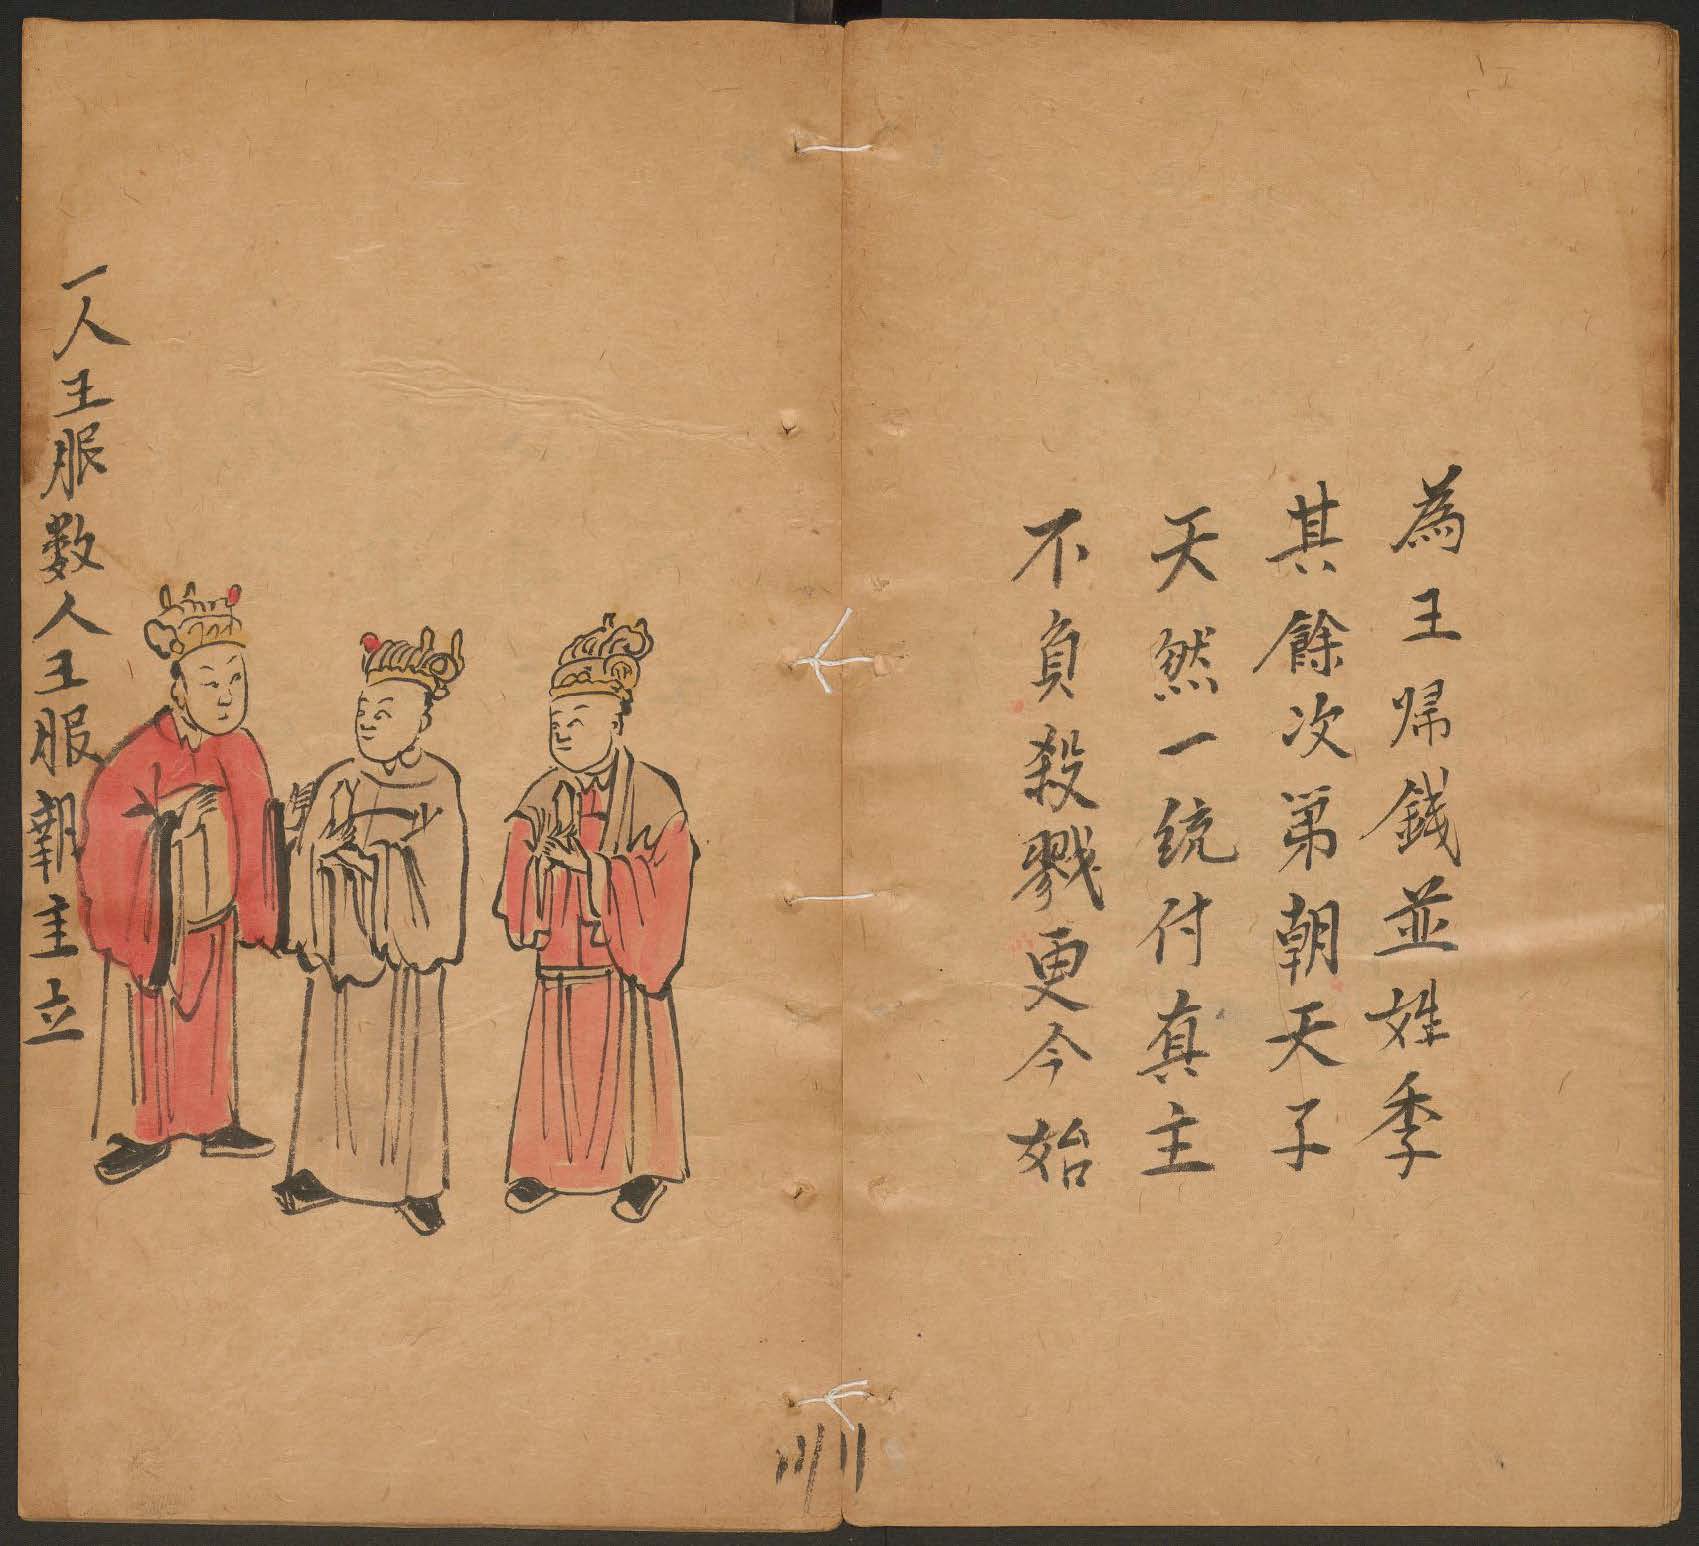 為王帰錢並姓季
其餘次第朝天子
天然一统付真主
不負殺戮更今始
一人王服数人王服朝主立